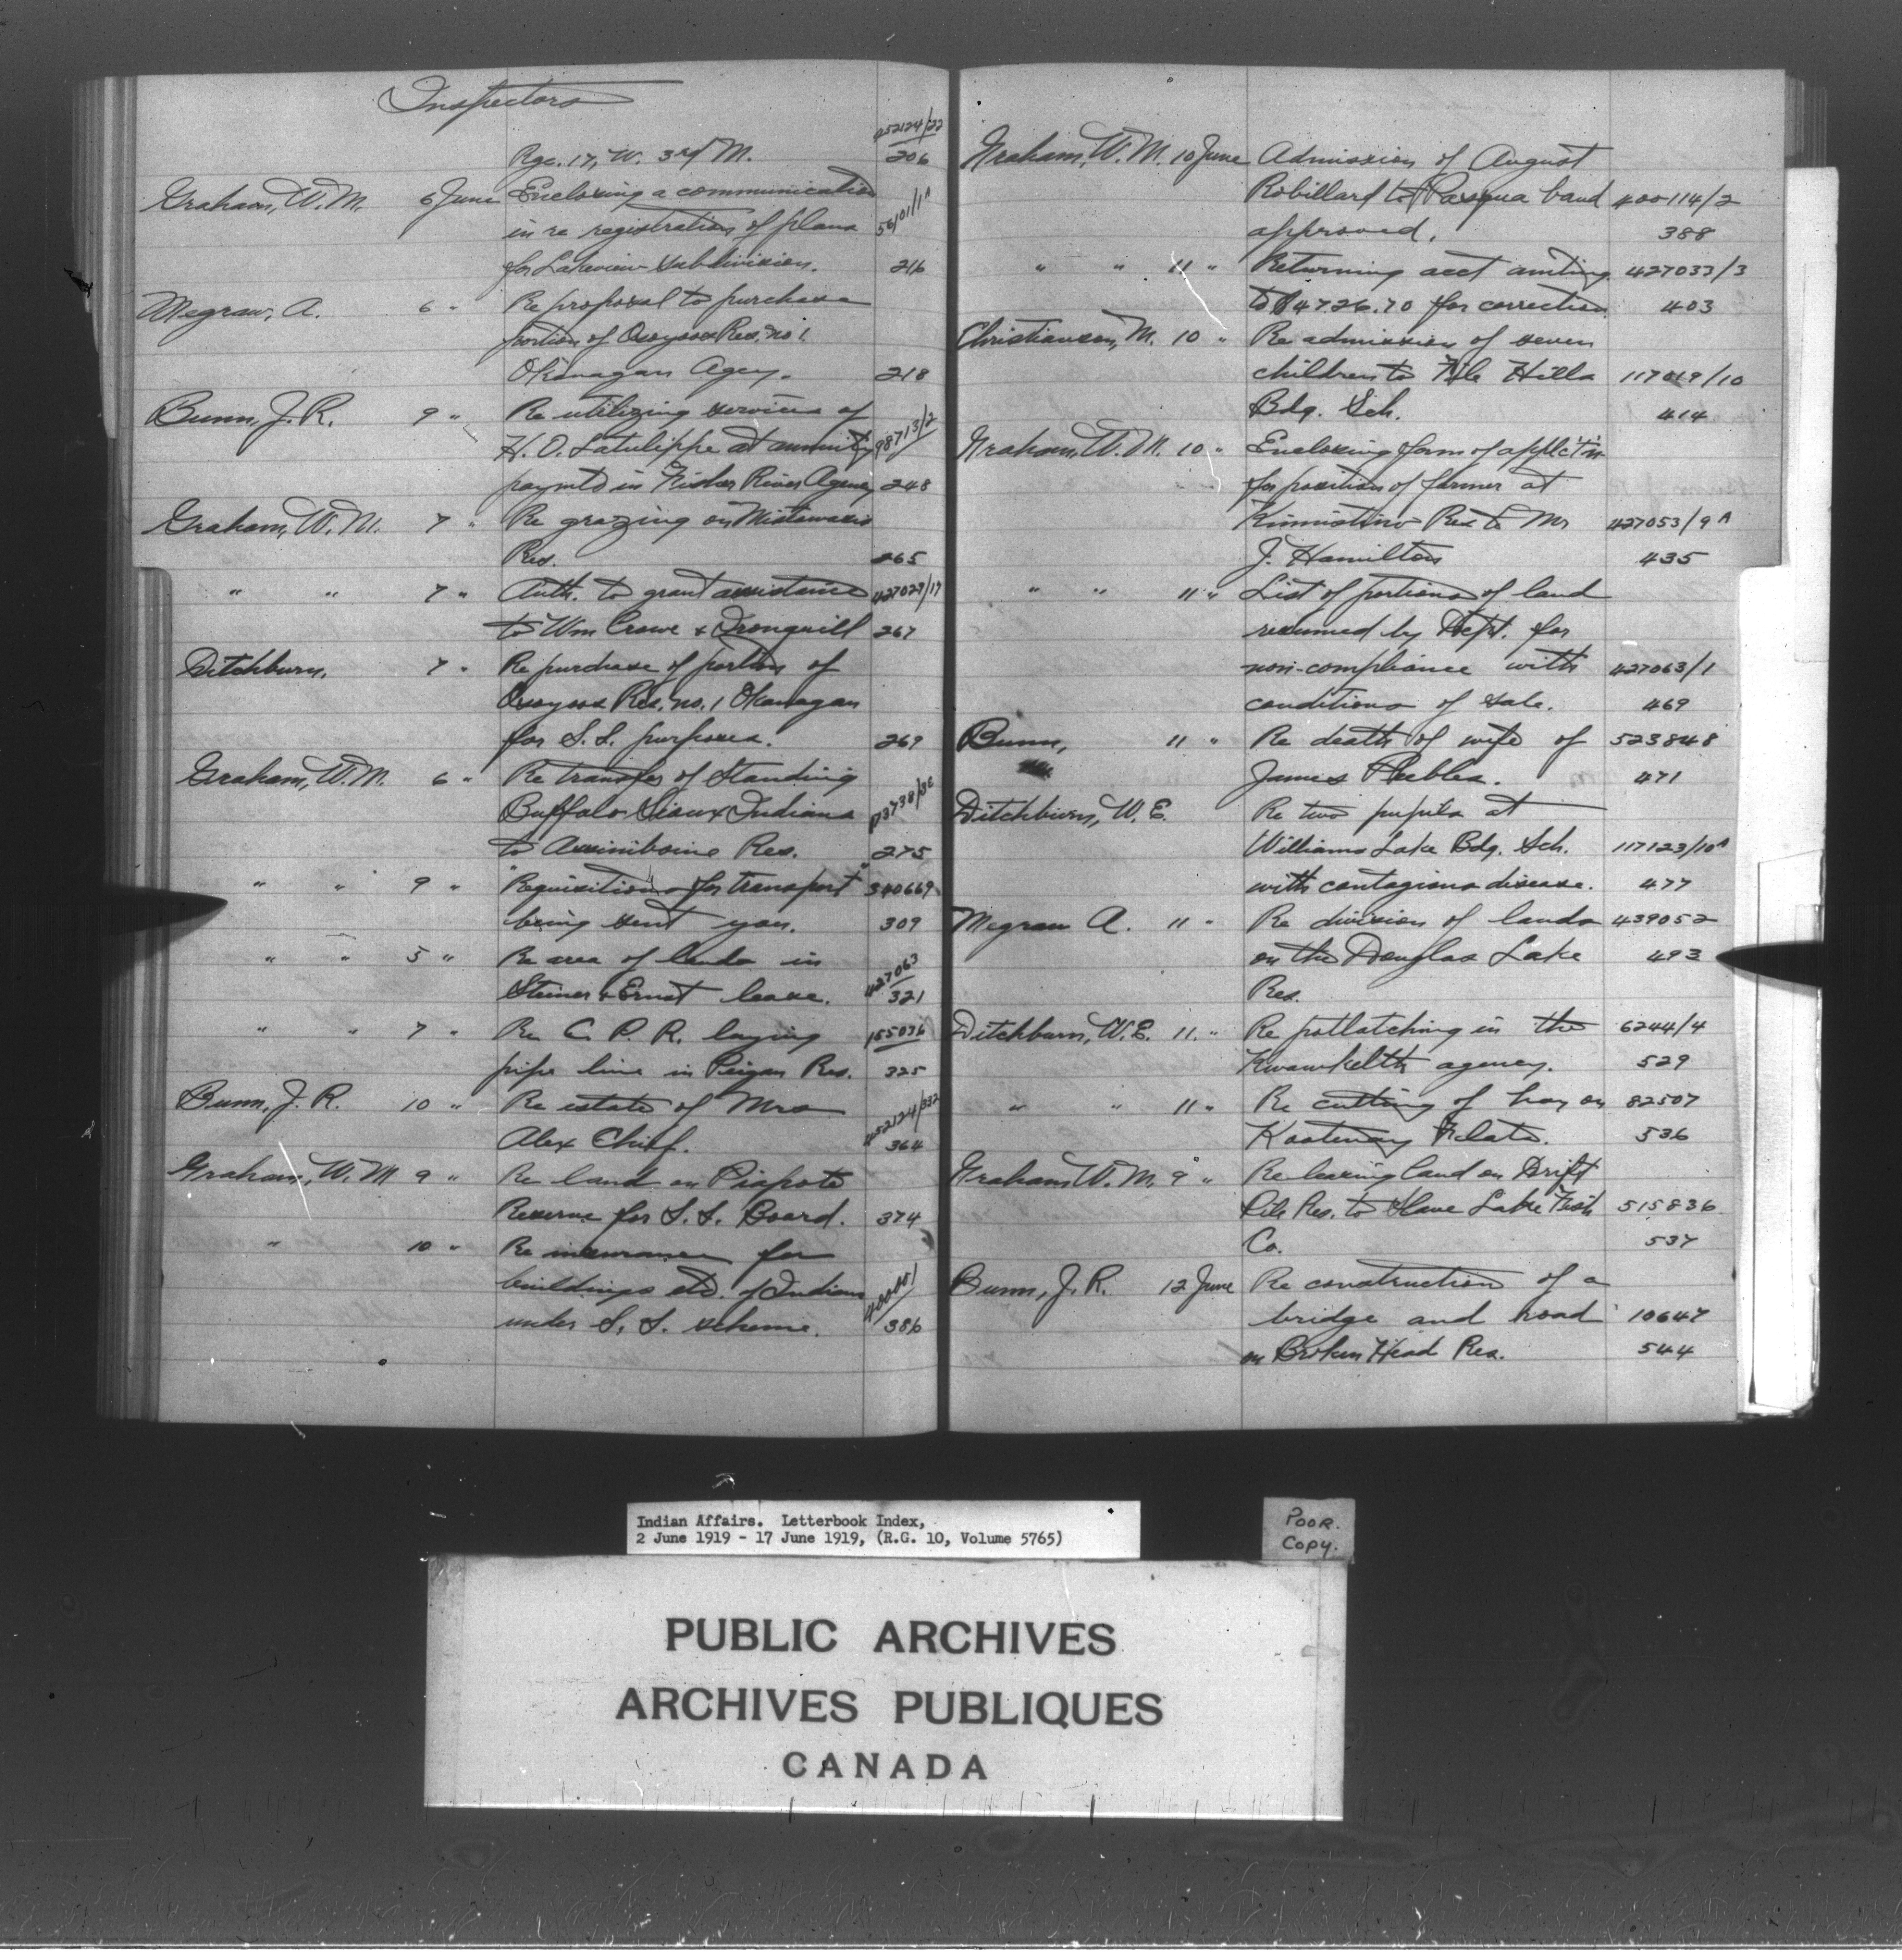 Inspectors
Rge. 17, W. 3rd M. 452124/22
206
Graham, W. M. 6 June Enclosing a communication
in re registration of plans 56101/1A
for Lakeview subdivision. 216
Megraw, A. 6 " Re proposal to purchase
portion of Osoyoos Res. no 1.
Okanagan Agcy. 218
Bunn, J. R. 9 " Re utilizing services of
H. O. Latulippe at annuity 98713/2
paymts in Fisher River Agency 248
Graham, W. M. 7 " Re grazing on Mistawasis
Res. 265
" " 7 " Auth. to grant assistance 427029/17
to Wm Crowe & Tronquill 267
Ditchburn, 7 " Re purchase of portion of
Osoyoos Res. no. 1 Okanagan
for S. S. purposes. 269
Graham, W. M. 6 " Re transfer of Standing
Buffalo Sioux Indians
to Assiniboine Res. 275
" " 9 " "Requisitions for transport" 340669
being sent you. 309
" " 5 " Re area of lands in 427063
Steiner & Ernst lease. 321
" " 7 " Re C. P. R. laying 155036
pipe line in Peigan Res. 325
Bunn, J. R. 10 " Re estate of Mrs 452124/332
Alex Chief. 364
Graham, W. M. 9 " Re land on Piapots
Reserve for S. S. Board. 374
" 10 " Re insurance for
buildings etc. of Indians
under S. S. scheme. 386
Graham, W. M. 10 June Admission of August
Robillard to Pasqua band 400114/2
approved. 388
" " 11 " Returning acct amting 427033/3
to $4726.70 for correction. 403
Christianson, M. 10 " Re admission of seven
children to File Hills 117019/10
Bdg. Sch. 414
Graham, W. M. 10 " Enclosing form of applc't'n
for position of farmer at
Kinnistino Res to Mr 427053/9A
J. Hamilton 435
" " 11 " List of portions of land
resumed by Dept. for
non-compliance with 427063/1
conditions of sale. 469
Bunn, 11 " Re death of wife of 523848
James Peebles. 471
Ditchburn, W. E. Re two pupils at
Williams Lake Bdg. Sch. 117123/10A
with contagious disease. 477
Megraw A. 11 " Re division of lands 439052
on the Douglas Lake 493
Res.
Ditchburn, W. E. 11. " Re potlatching in the 6244/4
Kwawkelth agency. 529
" " 11 " Re cutting of hay on 82507
Kootenay Flats. 536
Graham W. M. 9 " Re leasing land on Drift
Pile Res. to Slave Lake Fish 515836
Co. 537
Bunn, J. R. 12 June Re construction of a
bridge and road 10647
on Broken Head Res. 544
Indian Affairs. Letterbook Index,
2 June 1919 - 17 June 1919, (R.G. 10, Volume 5765)
POOR.
COPY.
PUBLIC ARCHIVES
ARCHIVES PUBLIQUES
CANADA